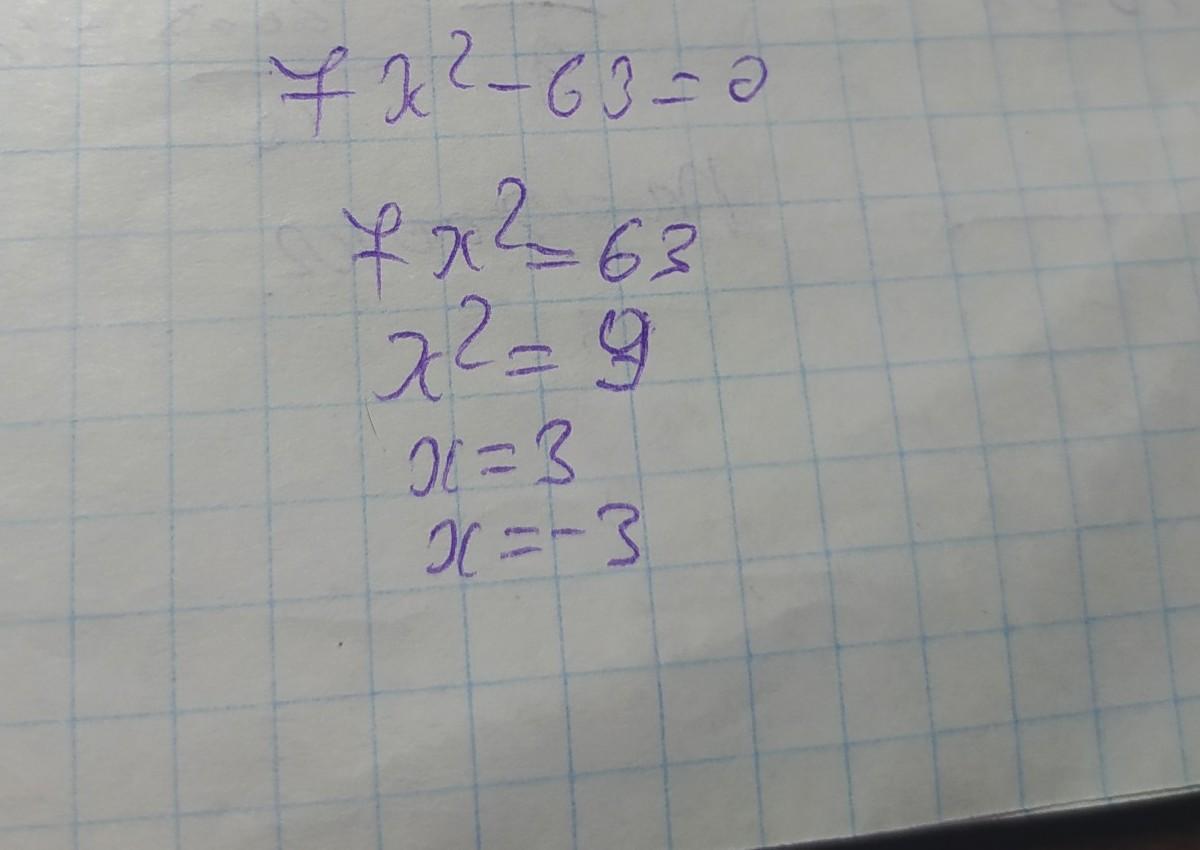 7x² - 63 = 0
7x² = 63
x² = 9
x = 3
x = -3